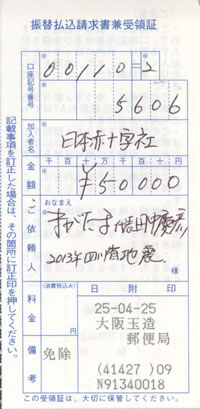 振替払込請求書兼受領証
口座記号番号
00110=2
5606
加入者名
日本赤十字社
金額
千百十万千百十円
¥50000
ご依頼人
おなまえ
まがたま
2013年四川省地震
様
料金
(消費税込み)
円
日附印
備考
免除
25-04-25
大阪玉造
郵便局
(41427)09
N91340018
記載事項を訂正した場合は、その箇所に訂正印を押してください。
この受領証は、大切に保管してください。